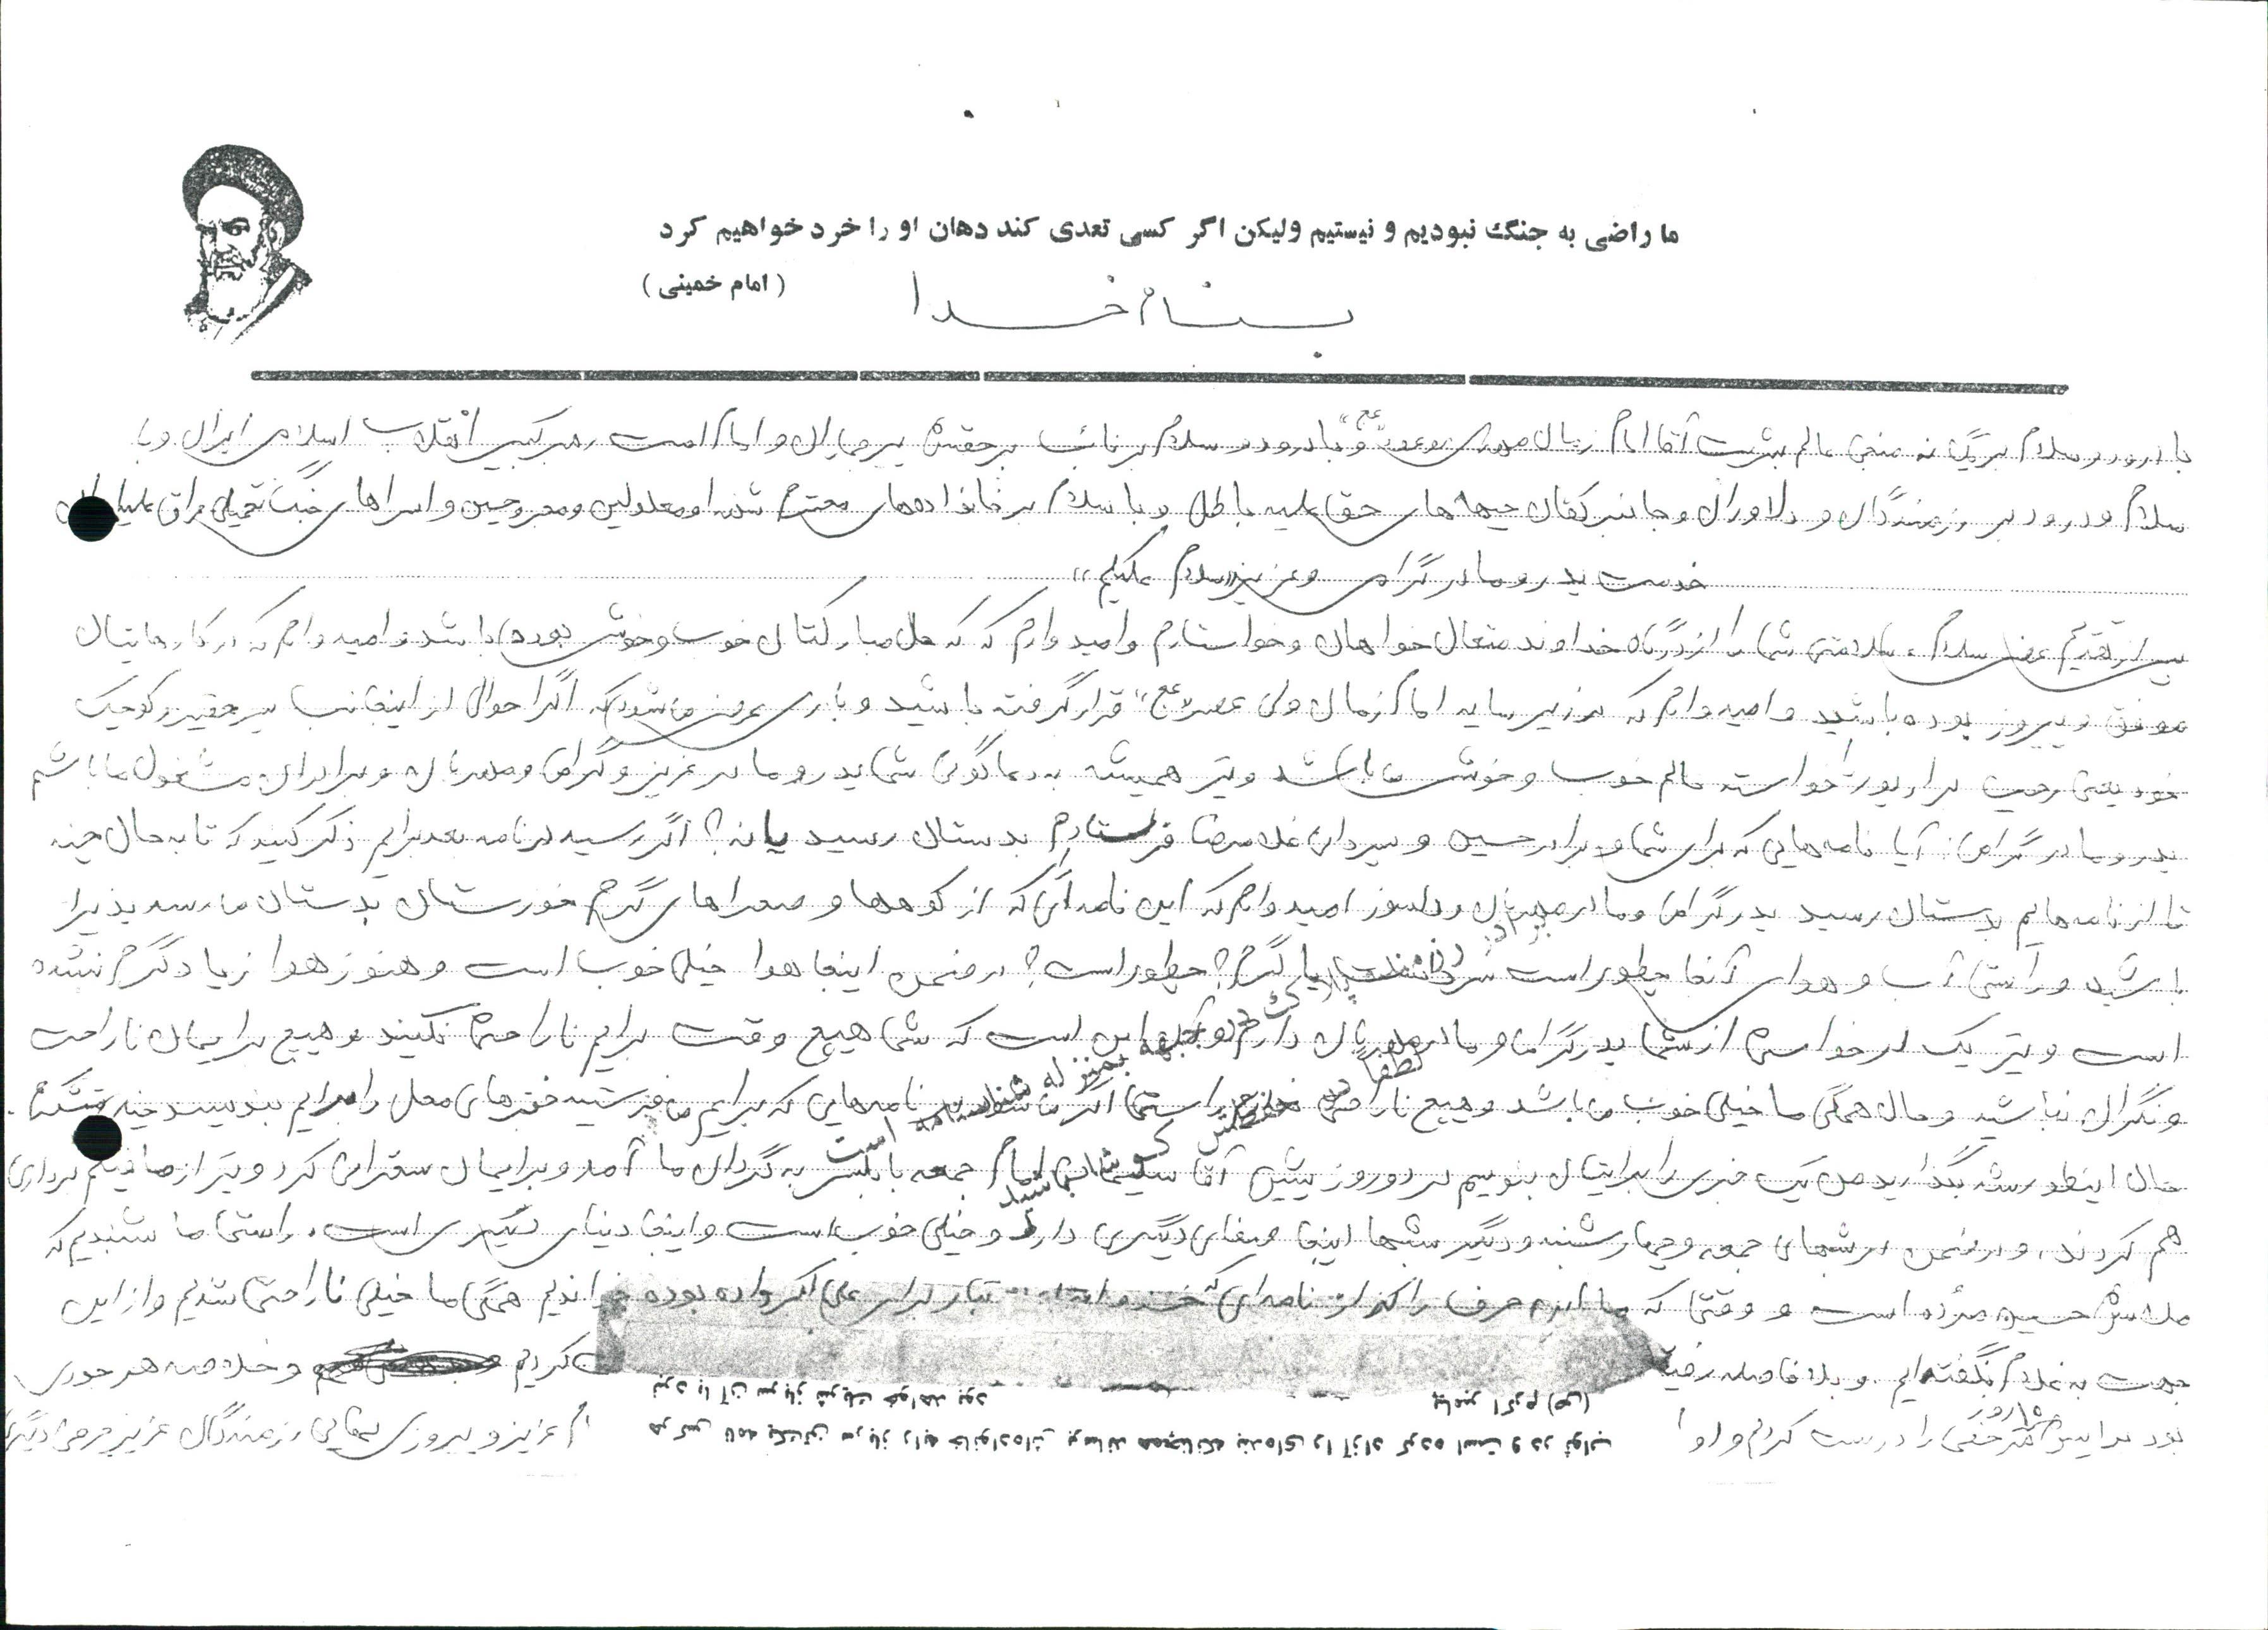 ما راضی به جنگ نبودیم و نیستیم ولیکن اگر کسی تعدی کند دهان او را خرد خواهیم کرد
(امام خمینی)
بنام خدا
با درود و سلام بر یگانه منجی عالم بشریت آقا امام زمان مهدی موعود "عج" و با درود و سلام بر نائب بر حقش پیر جماران و امام امت رهبر کبیر انقلاب اسلامی ایران و با
سلام و درود بر رزمندگان و دلاوران و جانبرکفان جبهه های حق علیه باطل و با سلام بر خانواده های محترم شهدا و معلولین و مجروحین و اسراهای جنگ تحمیلی عراق علیه
خدمت پدر و مادر گرامی و عزیز سلام علیکم
پس از تقدیم عرض سلام، سلامتی شما را از درگاه خداوند متعال خواهان و خواستارم و امیدوارم که که حال مبارکتان خوب و خوش بوده باشد و امیدوارم که در کارهایتان
موفق و پیروز بوده باشید و امیدوارم که در زیر سایه امام زمان ولی عصر "عج" قرار گرفته باشید و باری عرض می شود که اگر احوالی از اینجانب پسر حقیر و کوچک
خود یعنی رجب برارپور را خواسته حالم خوب و خوش می باشد و نیز همیشه به دعاگوئی شما پدر و مادر عزیز و گرامی و مهربان و برادران مشغول ما باشم
پدر و مادر گرامی: آیا نامه هایی که برای شما و برادر حسین و پسردائی غلامرضا فرستادم بدستان رسید یا نه؟ اگر رسید در نامه بعد برایم ذکر کنید که تا به حال چند
تا از نامه هایم بدستان رسید پدر گرامی و مادر مهربان و دلسوز امیدوارم که این نامه ای که از کوهها و صحراهای گرم خوزستان بدستان می رسد پذیرا
باشید و راستی آب و هوای آنجا چطور است سرد است یا گرم؟ چطور است؟ در ضمن اینجا هوا خیلی خوب است و هنوز هوا زیاد گرم نشده
است و نیز یک درخواستی از شما پدر گرامی و مادر مهربان دارم و آن این است که شما هیچ وقت برایم ناراحتی نکنید و هیچ برایمان ناراحت
و نگران نباشید و حال همگی ما خیلی خوب می باشد و هیچ ناراحتی نداریم راستی اگر می شود در نامه هایی که برایم می فرستید خبرهای محل را برایم بنویسید خیلی متشکرم.
حال اینطور شد بگذارید من یک خبری را برایتان بنویسم در دو روز پیش آقا سلیمانی امام جمعه بابلسر به گردان ما آمد و برایمان سخنرانی کرد و نیز از ما فیلم برداری
هم کردند، و در ضمن در شبهای جمعه و چهارشنبه و دیگر شبها اینجا صفای دیگری دارد و خیلی خوب است و اینجا دنیای دیگری است. راستی ما شنیدیم که
حسین مرده است و وقتی که ما این حرف را که از نامه ای که برای علی اکبر داده بوده خواندیم همگی ما خیلی ناراحتی شدیم و از این
جهت به غلام نگفته ایم و بلافاصله کردیم و خلاصه هر جوری
بود برایش ۱۵ روز مرخصی را درست کردیم و او عزیز و پیروزی نهایی رزمندگان عزیز
برادر
لطفاً در حفظش کوشا باشید
هر کس نامه یکتن سرباز را به خانواده اش برساند همچنانکه بنده ای را آزاد کرده است و در ثواب
آن با سرباز شریک خواهد بود
پیامبر اکرم (ص)